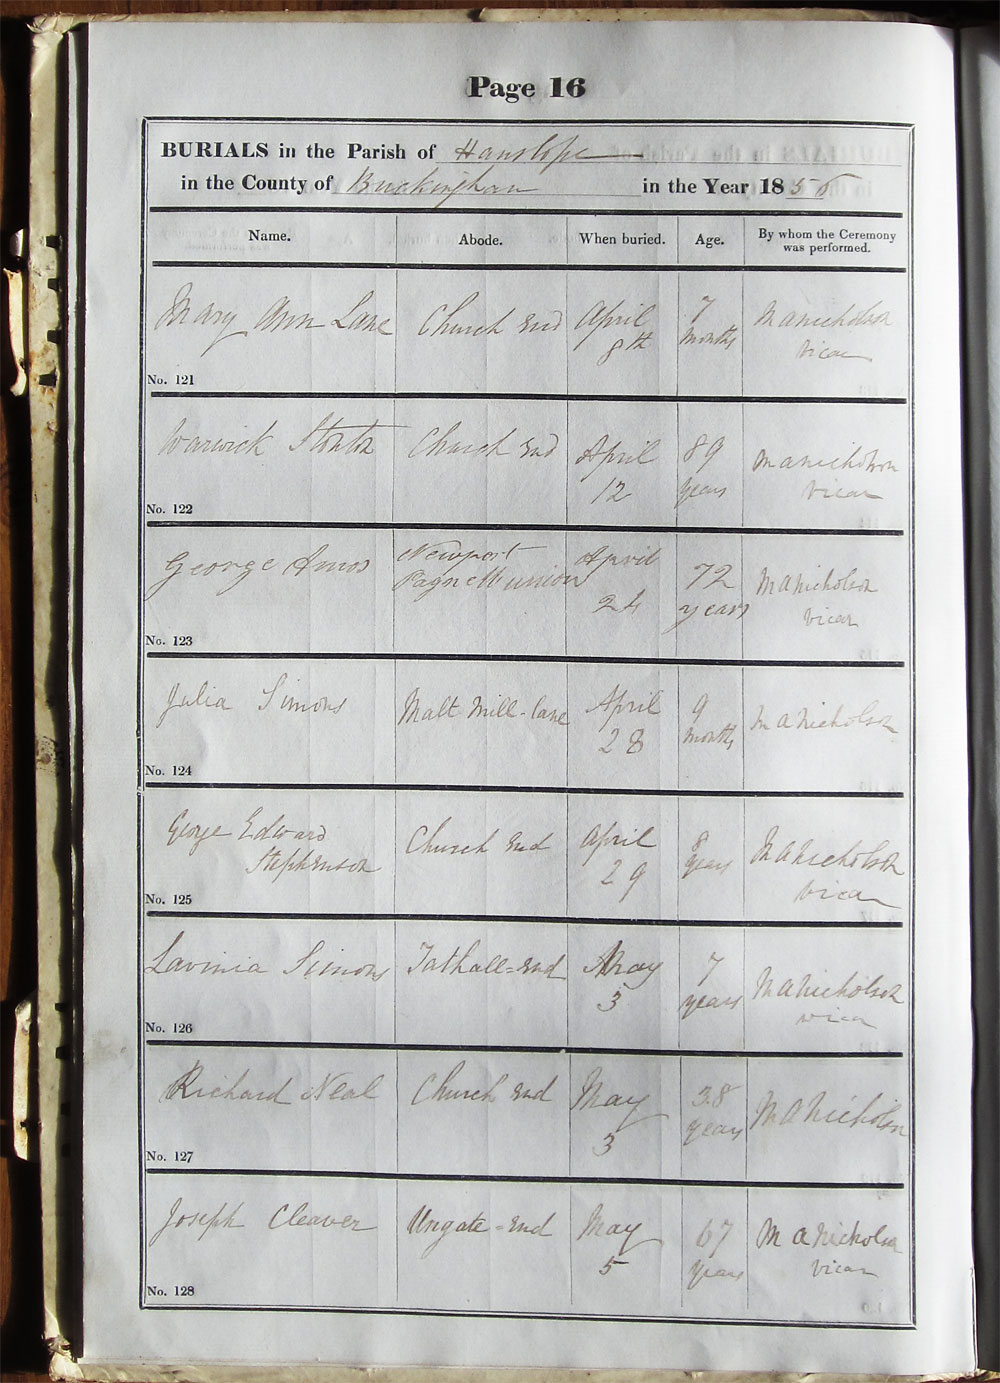 Page 16
BURIALS in the Parish of Hanslope
in the County of Buckingham in the Year 185
Name. Abode. When buried. Age. By whom the Ceremony was performed.
Mary Ann Lane Church End April 7 M A Nicholson
8th months Vicar
No. 121
Warwick Church End April 89 M A Nicholson
12 years Vicar
No. 122
George Amos Newport April 72 M A Nicholson
Pagnell union 24 years Vicar
No. 123
Julia Simons Malt Mill-lane April 9 M A Nicholson
28 months
No. 124
George Edward Church End April 8 M A Nicholson
Stephenson 29 years Vicar
No. 125
Lavinia Simons Tathall=End May 7 M A Nicholson
3 years Vicar
No. 126
Richard Neal Church End May 38 M A Nicholson
3 years
No. 127
Joseph Cleaver Ungate=End May 67 M A Nicholson
5 years Vicar
No. 128